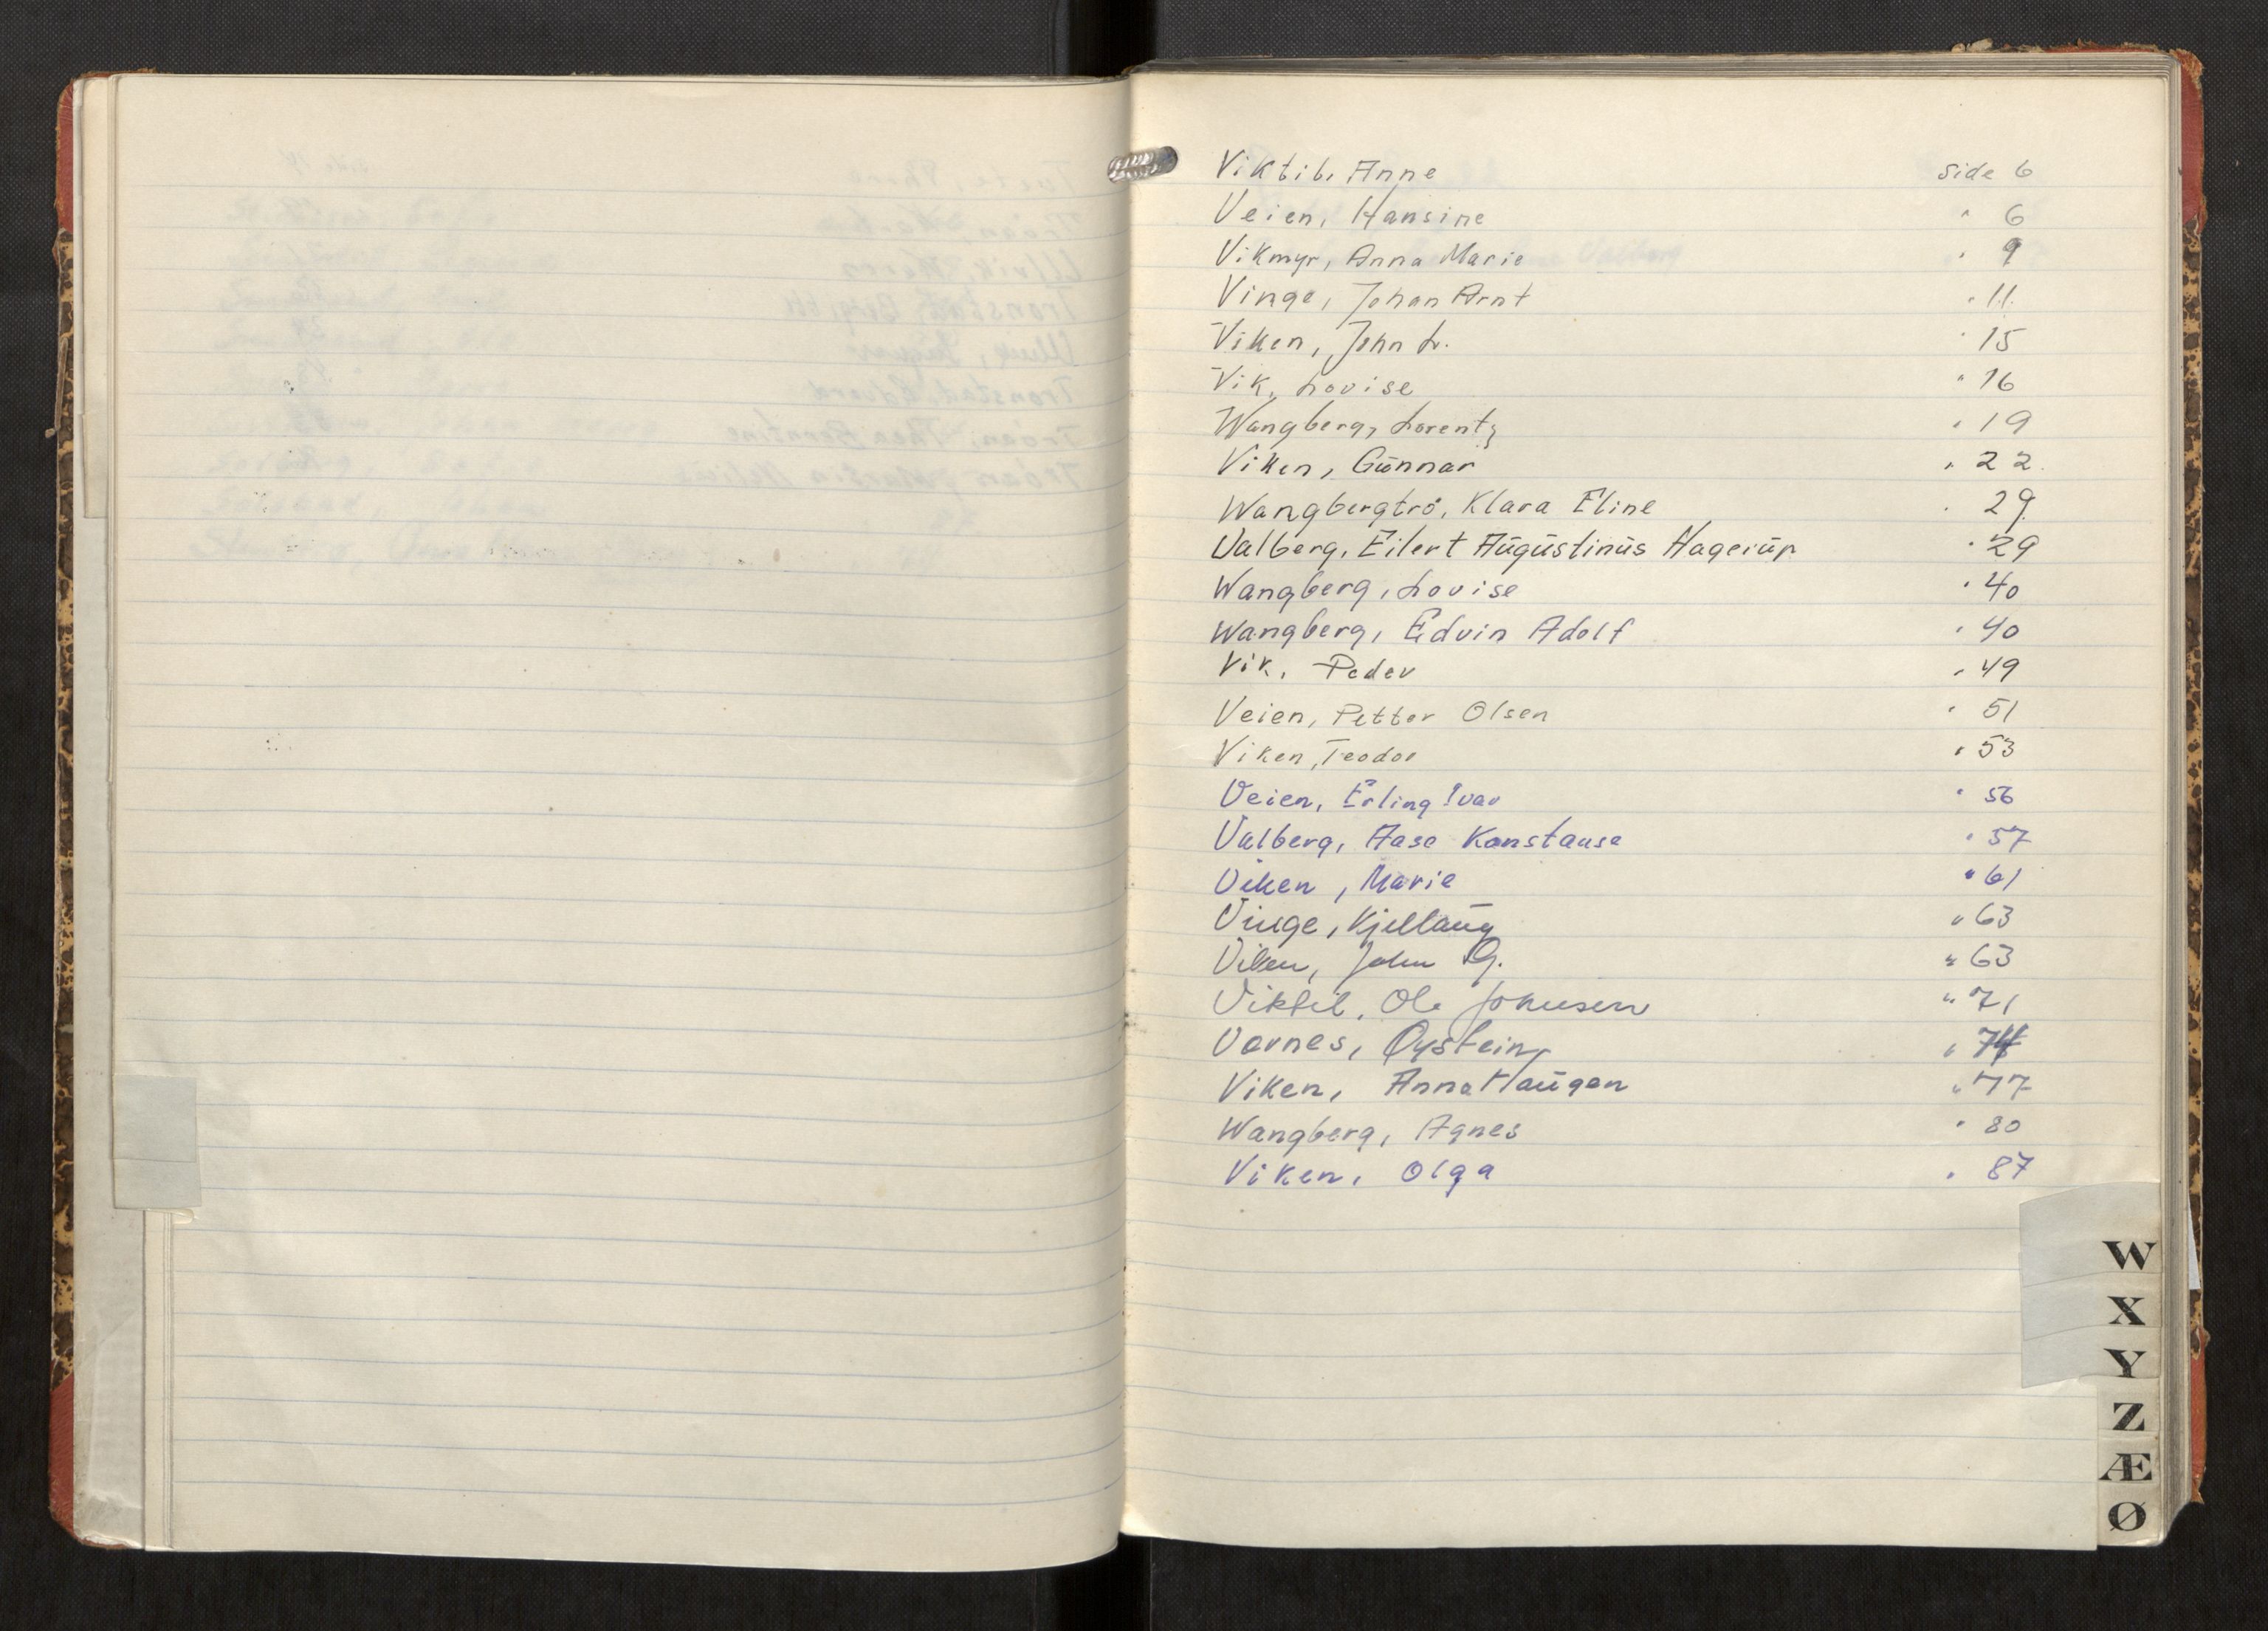 Viktil, Anne side 6
Veien, Hansine " 6
Vikmyr, Anna Marie " 9
Vinge, Johan Arnt " 11
Viken, John L. " 15
Vik, Lovise " 16
Wangberg, Lorentz " 19
Viken, Gunnar " 22
Wangbergtrø, Klara Eline " 29
Valberg, Eilert Augustinus Hagerup " 29
Wangberg, Lovise " 40
Wangberg, Edvin Adolf " 40
Vik, Peder " 49
Veien, Petter Olsen " 51
Viken, Teodor " 53
Veien, Erling Ivar " 56
Valberg, Aase Konstanse " 57
Viken, Marie " 61
Vinge, Kjellaug " 63
Viken, John G. " 63
Viktil, Ole Johnsen " 71
Vernes, Øystein "
Viken, Anna Haugen " 77
Wangberg, Agnes " 80
Viken, Olga " 87
W
X
Y
Z
Æ
Ø